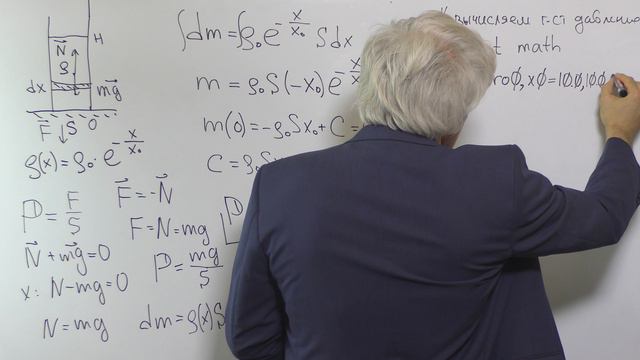 H
N⃗
ρ
dx
mg⃗
F⃗ S O
ρ(x)=ρ₀·e^(-x/x₀)
P=F/S
N⃗+mg⃗=0
x: N-mg=0
N=mg
F⃗=-N⃗
F=N=mg
P=mg/S
dm=ρ(x)S
∫dm=∫ρ₀e^(-x/x₀) S dx
m=ρ₀S(-x₀)e^(-x/x₀)
m(0)=-ρ₀Sx₀+C=
C=ρ₀Sx
P
вычисляем г-ст давлен
math
ro0,x0=10.0,10.0